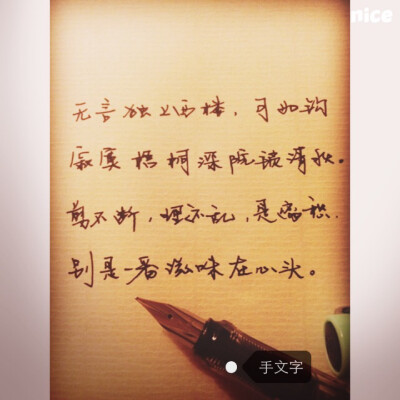 nice
无言独上西楼，月如钩
寂寞梧桐深院锁清秋。
剪不断，理还乱，是离愁.
别是一番滋味在心头。
手文字